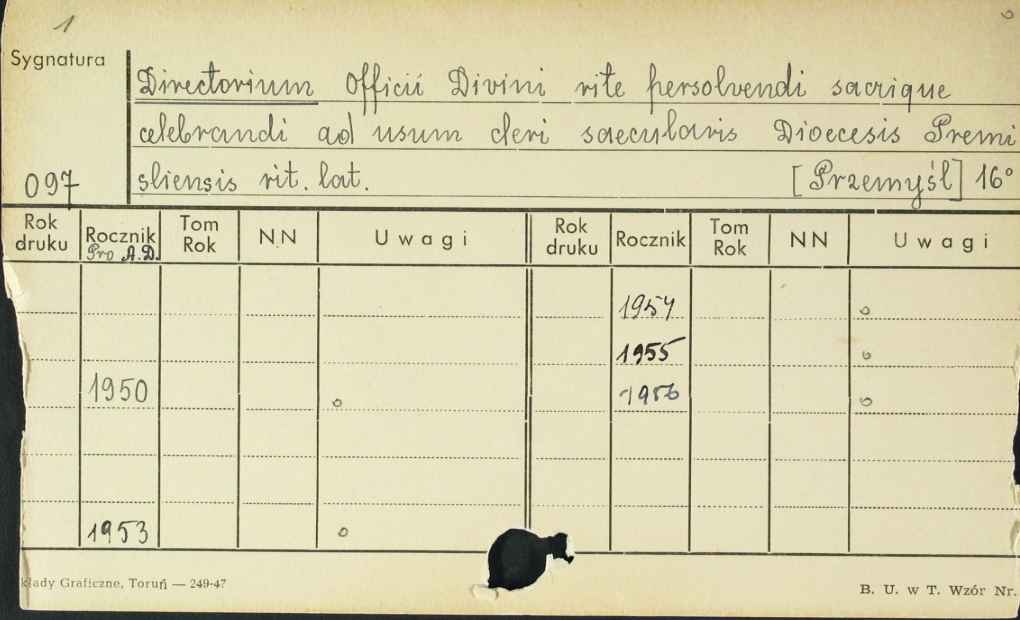 1
Sygnatura
Directorium Officii Divini rite persolvendi sacrique
celebrandi ad usum cleri saecularis Dioecesis Premi
sliensis rit. lat. [Przemyśl] 16°
097
Rok druku Rocznik Pro A.D. Tom Rok NN Uwagi Rok druku Rocznik Tom Rok NN Uwagi
1954
1955
1950 1956
1953
łady Graficzne, Toruń — 249-47 B. U. w T. Wzór Nr.